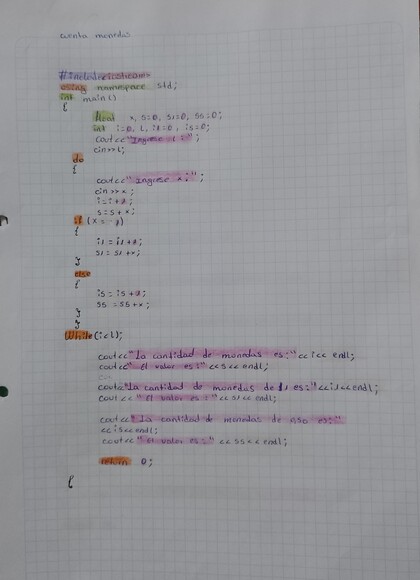 cuenta monedas
#include<iostream>
using namespace std;
int main()
{
float x, s=0, s1=0, s5=0;
int i=0, L, i1=0, i5=0;
cout<<"Ingrese L:";
cin>>L;
do
{
cout<<"Ingrese x:";
cin>>x;
i=i+1;
s=s+x;
if(x==1)
{
i1=i1+1;
s1=s1+x;
}
else
{
i5=i5+1;
s5=s5+x;
}
}
While(i<L);
cout<<"La cantidad de monedas es:"<<i<<endl;
cout<<"el valor es:"<<s<<endl;
cout<<"La cantidad de monedas de $1 es="<<i1<<endl;
cout<<"El valor es:"<<s1<<endl;
cout<<"La cantidad de monedas de es:"
<<i5<<endl;
cout<<"el valor es="<<s5<<endl;
return 0;
{